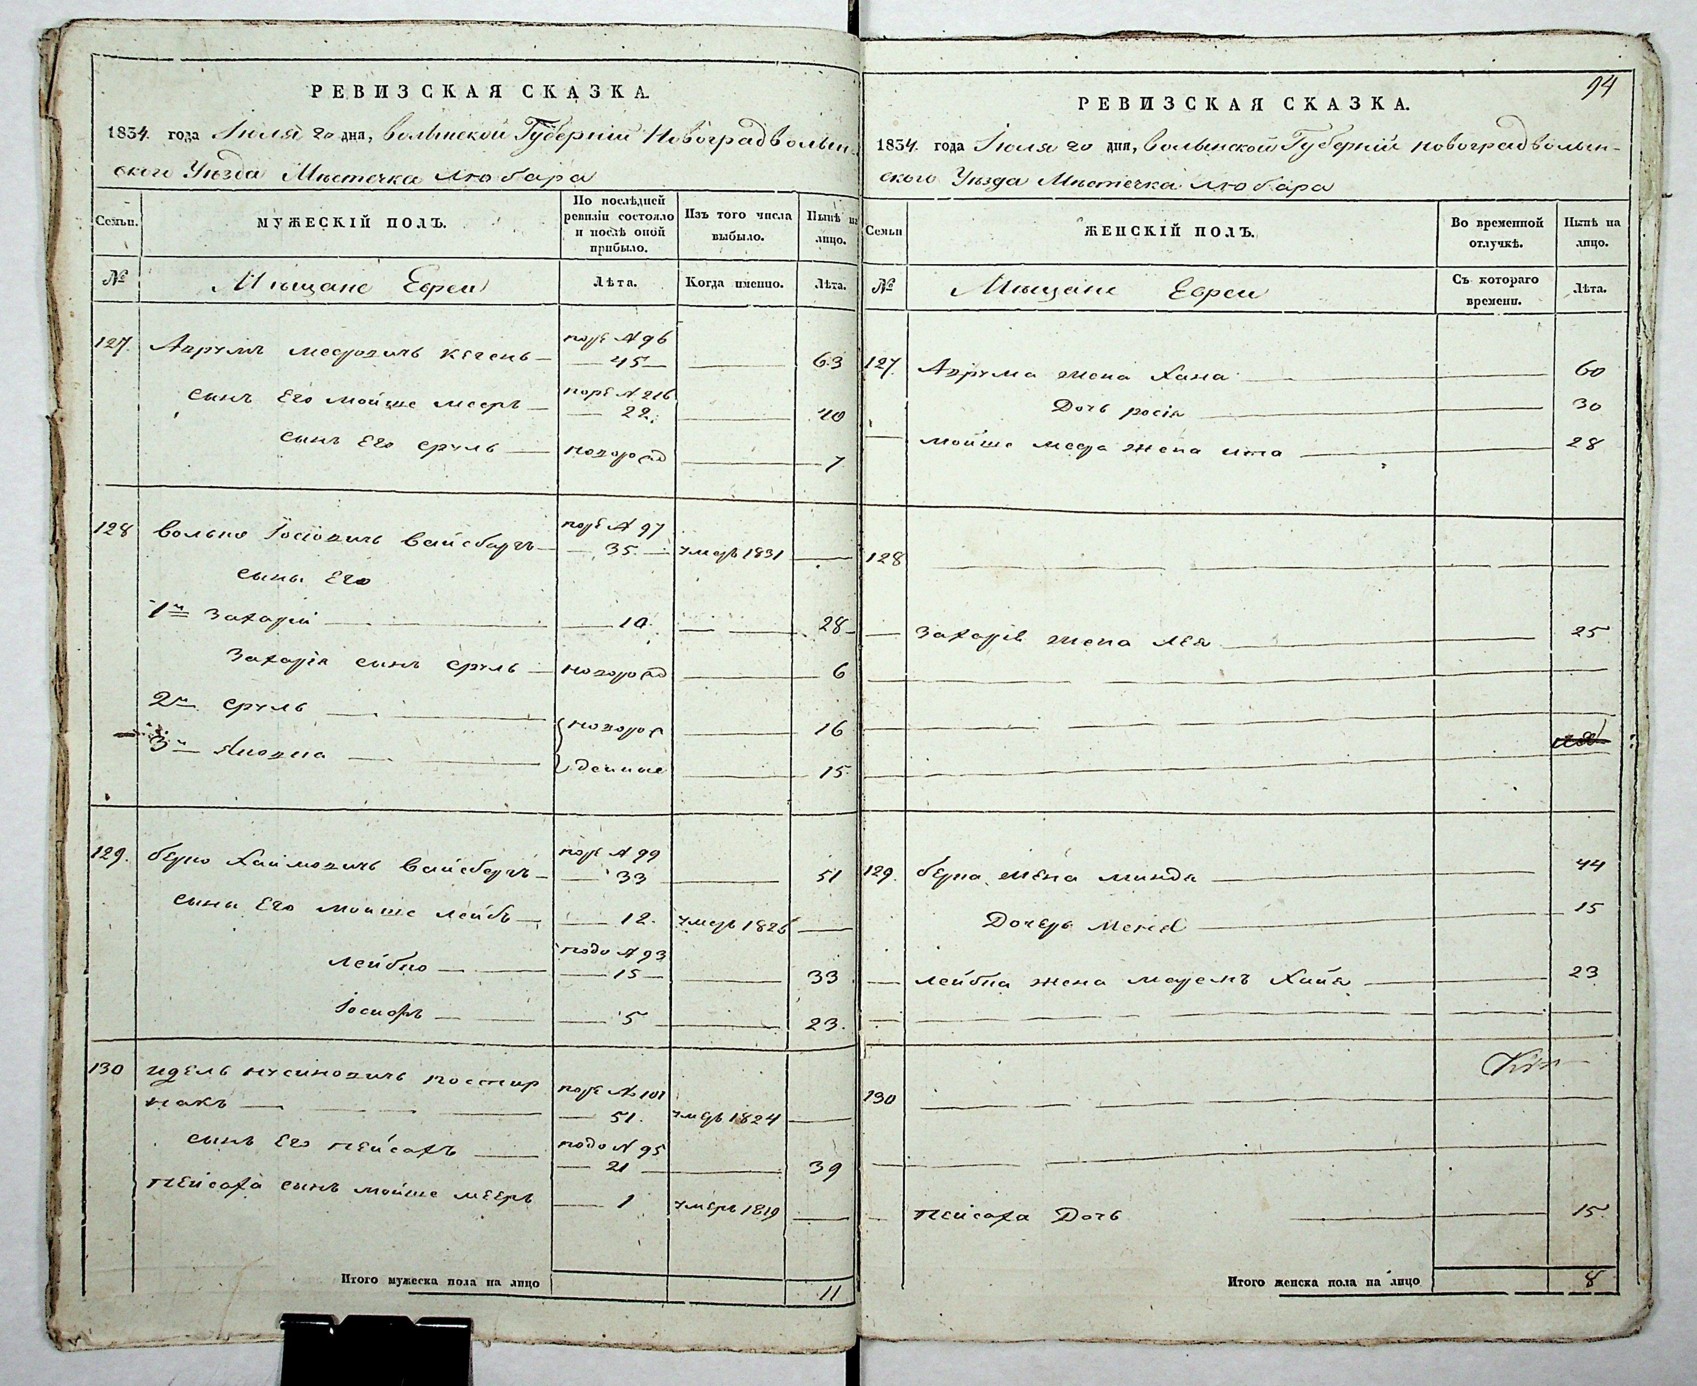 РЕВИЗСКАЯ СКАЗКА.
1834. года Іюля 20 дня, Волынской Губерніи Новоградволын-
ского Уѣзда Мѣстечка Любара
Семьи.
МУЖЕСКІЙ ПОЛЪ.
По послѣдней ревизіи состояло и послѣ оной прибыло.
Изъ того числа выбыло.
Нынѣ на лицо.
№
Мѣщане Евреи
Лѣта.
Когда именно.
Лѣта.
127. Аврумъ Меэровичъ 45 63
№ 96
сынъ Его Мойше Мееръ 22. 40
№ 216
сынъ Его Сруль новорожд 7
128 Волько Іосіовичъ Вайсбергъ 35. умеръ 1831
№ 97
сыны Его
1й Захарій 10. 28
Захарія сынъ Сруль новорожд 6
2й Сруль новорож 16
3й Янована денные 15.
129. Берко Хаимовичъ Вайсбергъ 33 51
№ 99
сыны Его Мойше Лейбъ 12. умеръ 1826
Лейбко 15 33
№ 93
Іосифъ 5 23.
130 Идель Нусиновичъ Постир
накъ 51. умеръ 1824
№ 101
сынъ Его Пейсахъ 21 39
№ 95
Пейсаха сынъ Мойше Мееръ 1 умеръ 1819
Итого мужеска пола на лицо 11
94
РЕВИЗСКАЯ СКАЗКА.
1834. года Іюля 20 дня, Волынской Губерніи Новоградволын-
ского Уѣзда Мѣстечка Любара
Семьи
ЖЕНСКІЙ ПОЛЪ.
Во временной отлучкѣ.
Нынѣ на лицо.
№
Мѣщане Евреи
Съ котораго времени.
Лѣта.
127. Аврума жена Хана 60
Дочь Росія 30
Мойше Меера жена Ита 28
128
Захарія жена Лея 25
129. Берка жена Минда 44
Дочерь 15
Лейбка жена Хайя 23
130
Пейсаха Дочь 15.
Итого женска пола на лицо 8